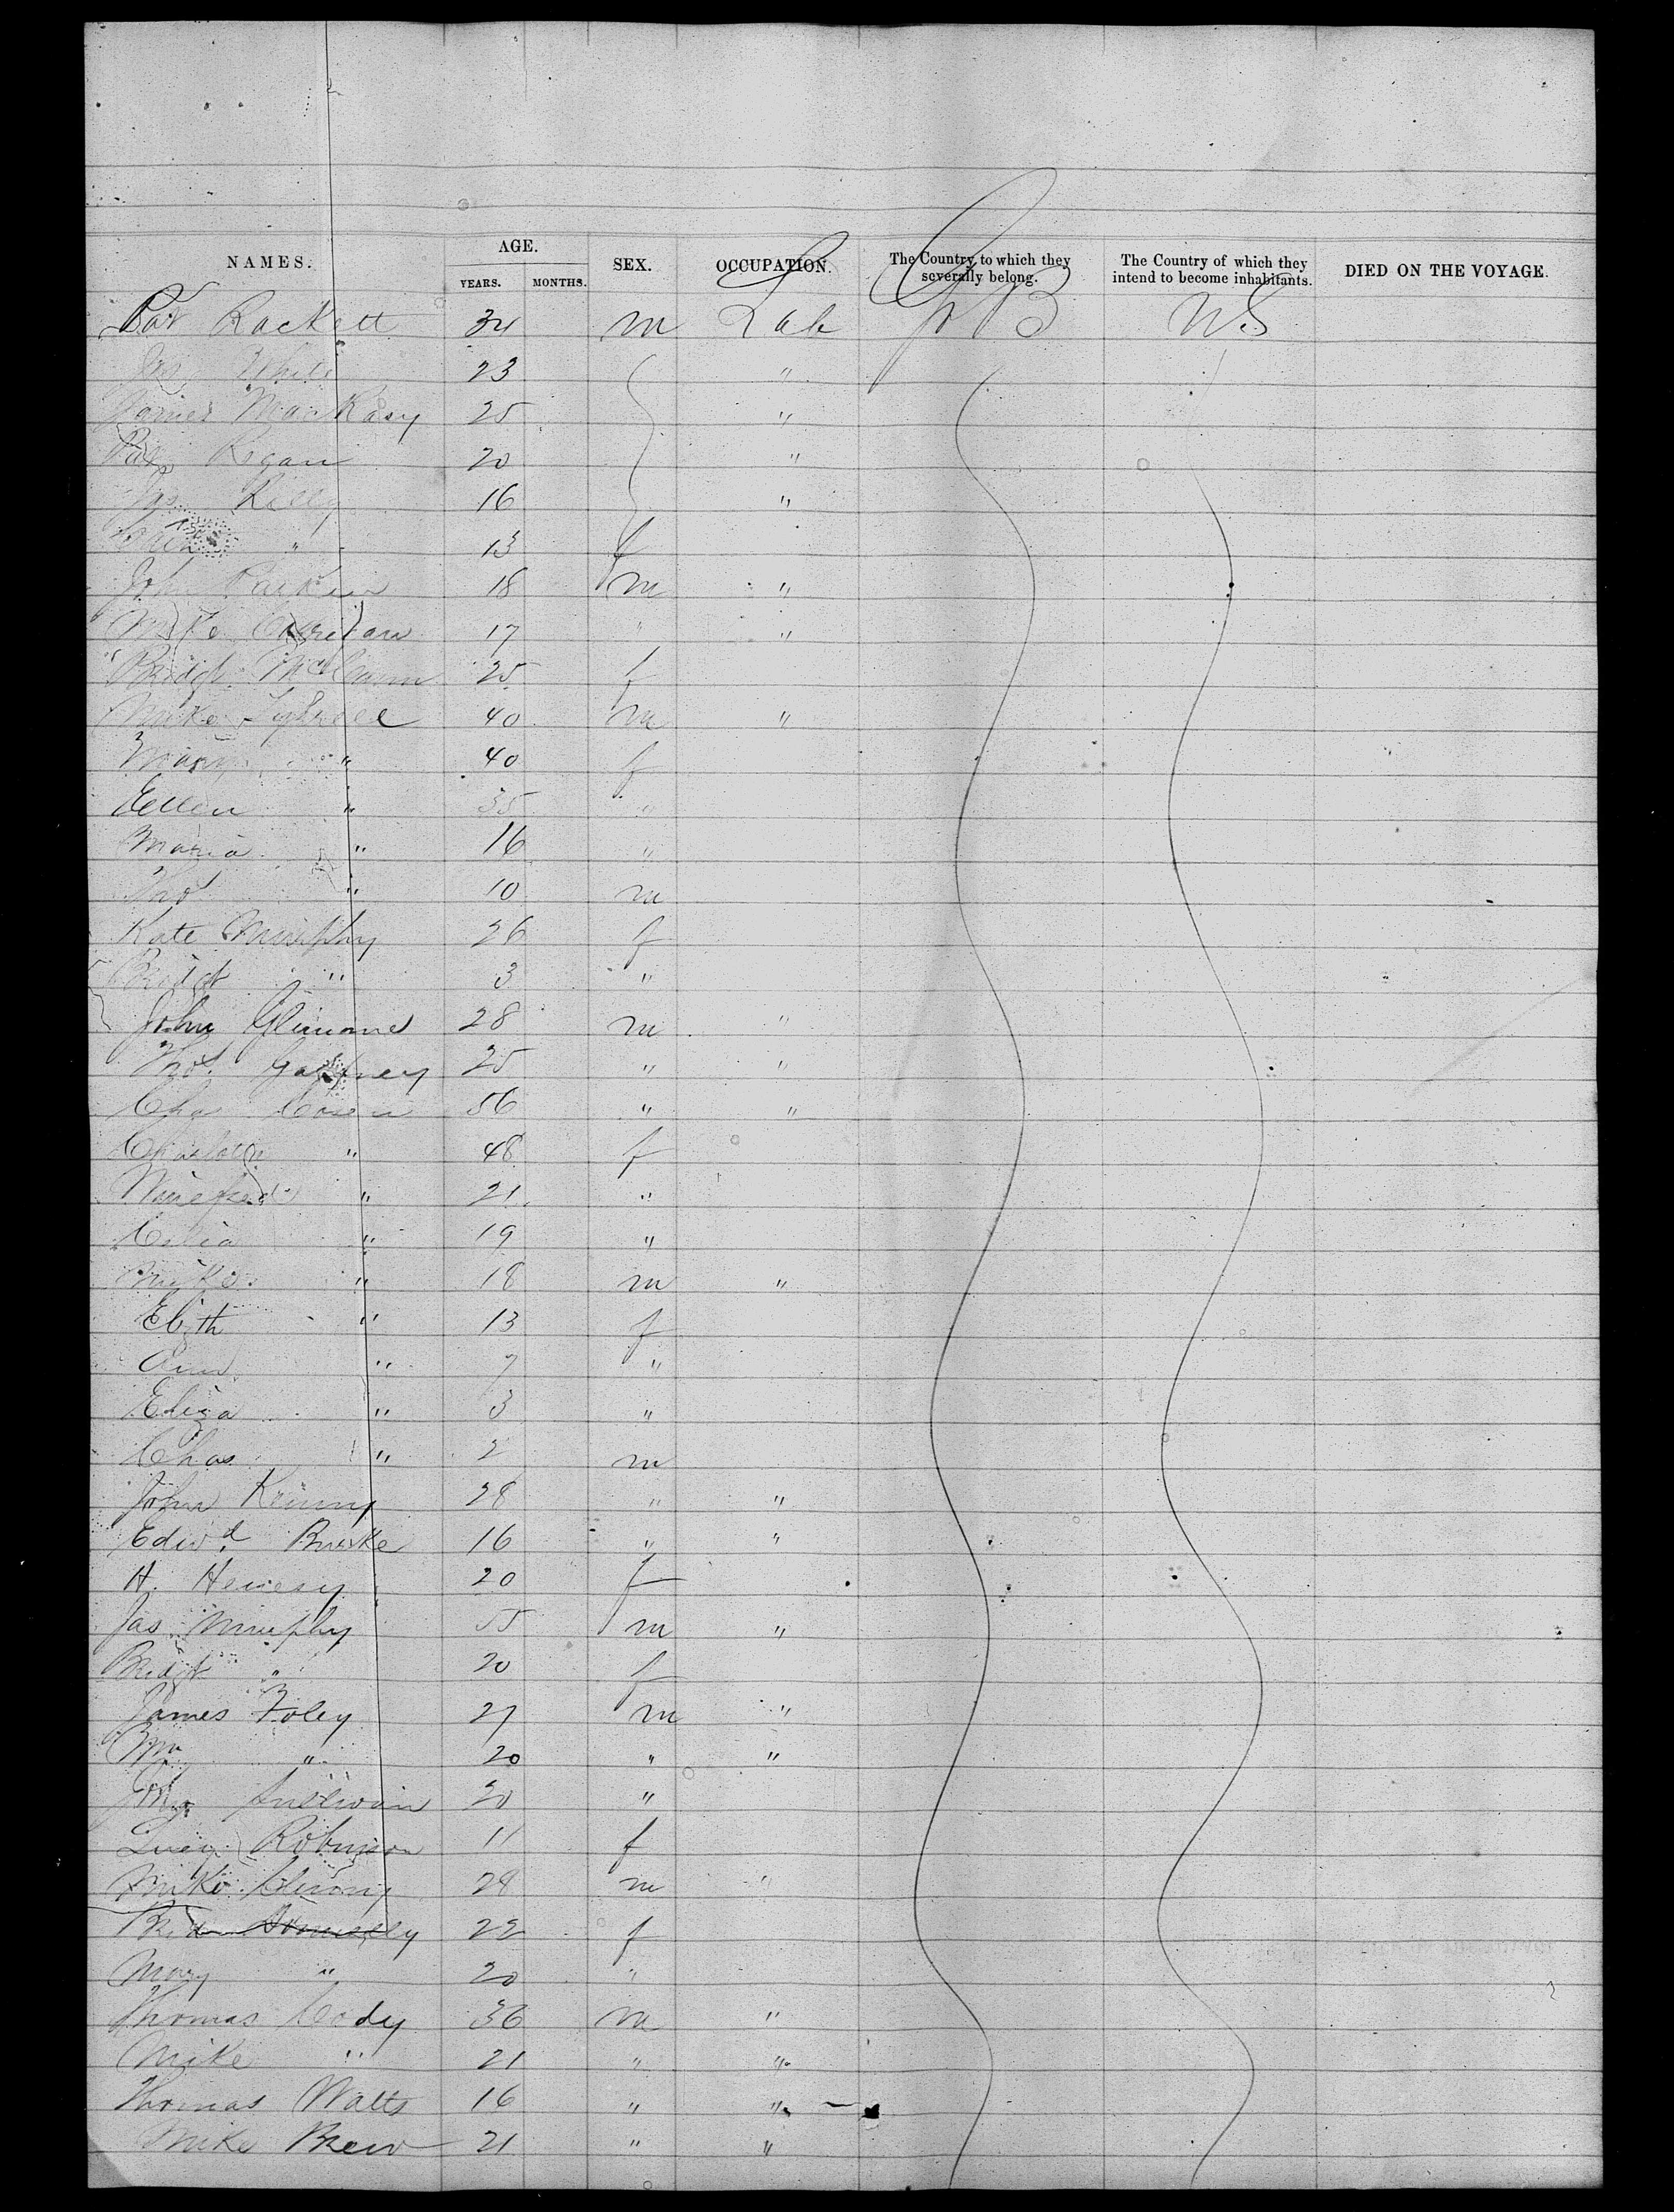 NAMES. AGE. SEX. OCCUPATION. The Country to which they severally belong. The Country of which they intend to become inhabitants. DIED ON THE VOYAGE.
YEARS. MONTHS.
Pat Rackett 34 m Lab Gr B U.S
Jas White 23 "
James MacKasy 25 "
Pat Regan 20 "
Jas Kelly 16 "
" 13 f
John 18 m "
Mike 17 " "
Bridgt McCann 25 f
Mike 40 m "
Mary " 40 f
Ellen " 35 "
Maria " 16 "
Thos " 10 m
Kate Murphy 26 f
Bridgt " 3 "
John 28 m "
Thos Gaffney 25 " "
Cha 56 " "
Charlotte " 48 f
Winefred " 21 "
Celia " 19 "
Mike " 18 m "
Elizth " 13 f
Ann " 7 "
Eliza " 3 "
Chas " 2 m
John Kenny 28 " "
Edwd Burke 16 " "
H. Henesy 20 f
Jas Murphy 55 m "
Bridgt " 20 f
James Foley 27 m "
Wm " 20 " "
John Sullivan 20 "
Lucy Robinson 11 f
Mike 28 m "
Donnelly 22 f
Mary " 20 "
Thomas Cody 36 m "
Mike " 21 " "
Thomas Watts 16 " "
Mike Brew 21 " "